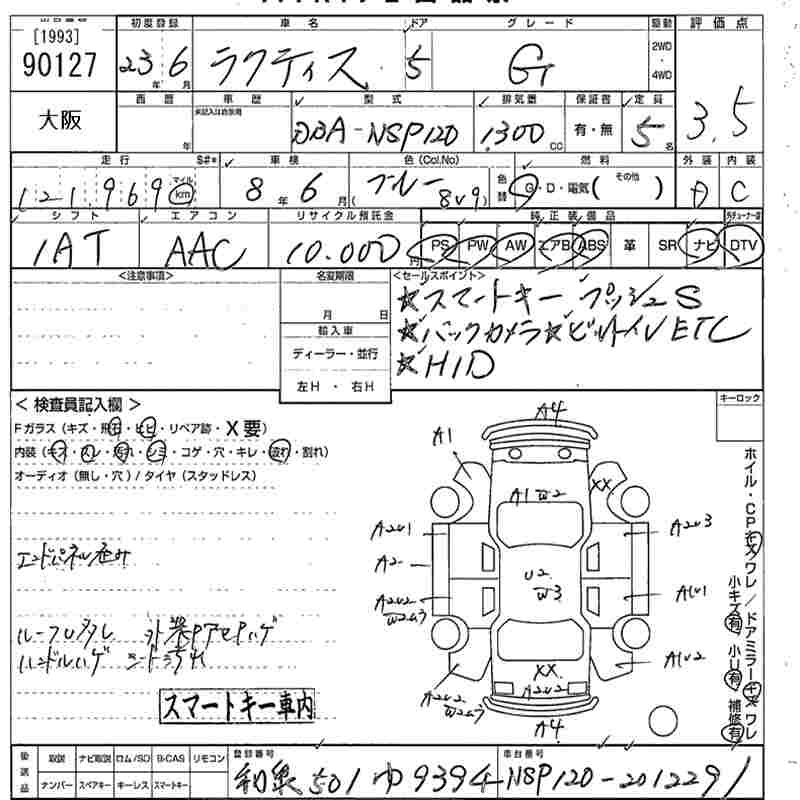 [1993]
90127
初度登録 車名 ドア グレード 駆動 評価点
23年 6月 ラクティス 5 G 2WD・4WD 3.5
大阪
西暦 車歴 型式 排気量 保証書 定員
年 DBA-NSP120 1300cc 有・無 5名
走行 S#* 車検 色(Col.No) 燃料 外装 内装
121,969 マイル km 8年 6月 ブルー (8V9) 色替 G・D・電気( その他 ) D C
シフト エアコン リサイクル預託金 純正装備品
IAT AAC 10.000円 PS PW AW エアB ABS 革 SR ナビ DTV
<注意事項> 名変期限 <セールスポイント>
月 日 ☆スマートキー プッシュS
輸入車 ☆バックカメラ☆ビルトインETC
ディーラー・並行 ☆HID
左H ・ 右H
<検査員記入欄> キーロック
Fガラス(キズ・飛石・ヒビ・リペア跡・X要)
内装(キズ・スレ・汚れ・シミ・コゲ・穴・キレ・破れ・割れ)
オーディオ(無し・穴)/タイヤ(スタッドレス)
エンドパネル歪み
ルーフUタレ
ハンドルハゲ シート汚れ
スマートキー車内
A4
A1
XX
A1 W2
A2U1 A2U3
A2
U2 W3
A2U2 W2U3 A1U1
A1U2
XX
A2U2
A2U2 W2U3
A4
ホイル・CPキズワレ/ドアミラーキズワレ
小キズ有 小U有 補修有
後送品 取説 ナビ取説 ロム/SD B-CAS リモコン 登録番号 車台番号
ナンバー スペアキー キーレス スマートキー 和泉 501 ゆ 9394 NSP120-2012291